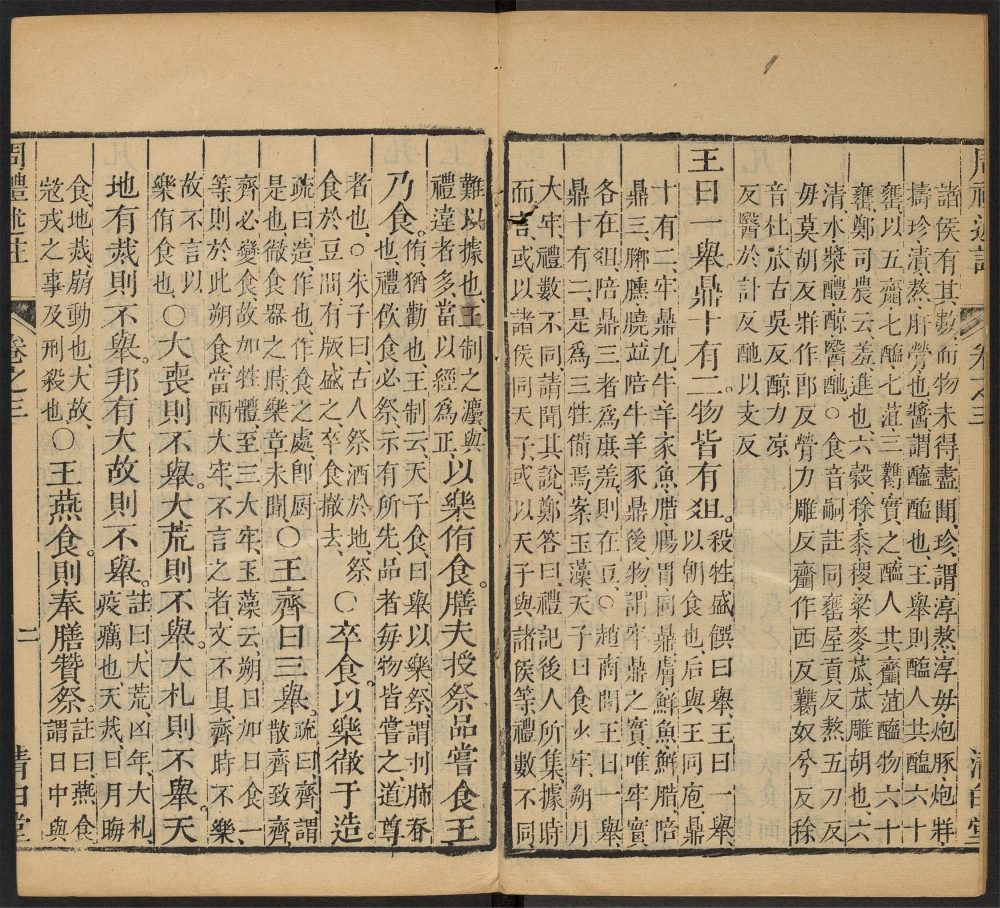 周禮述註 卷之三 清白堂
諸侯有其數而物未得盡聞、珍謂淳熬、淳毋、炮豚、炮牂、
擣珍、漬、熬、肝膋也、醬謂醯醢也、王舉則醢人共醢六十
罋、以五齏七醢七菹三臡實之、醯人共齏菹醯物六十
罋、鄭司農云、羞、進也、六穀、稌黍稷粱麥苽、苽、雕胡也、六
清、水漿醴䣼醫酏、○食音嗣註同、罋屋貢反、熬五刀反、
毋莫胡反、牂作郎反、膋力雕反、齏作西反、臡奴兮反、稌
音杜、苽古吳反、䣼力凉
反、醫於計反、酏以支反
王日一舉鼎十有二物皆有俎。殺牲盛饌曰舉、王日一舉、
以朝食也、后與王同庖、鼎
十有二、牢鼎九、牛羊豕魚腊腸胃同鼎膚鮮魚鮮腊、陪
鼎三、膷臐膮、竝陪牛羊豕鼎後、物謂牢鼎之實、唯牢實
各在俎、陪鼎三者爲庶羞、則在豆、○趙商問王日一舉、
鼎十有二、是爲三牲備焉、案玉藻、天子日食少牢、朔月
大牢、禮數不同、請聞其說、鄭答曰、禮記後人所集、據時
而言、或以諸侯同天子、或以天子與諸侯等、禮數不同、
難以據也、王制之灋、與
禮違者多、當以經爲正、以樂侑食。膳夫授祭品嘗食王
乃食。侑猶勸也、王制云、天子食、日舉以樂、祭、謂刌肺脊
也、禮、飲食必祭、示有所先、品者、每物皆嘗之、道尊
者也、○朱子曰、古人祭酒於地、祭
食於豆閒、有版盛之、卒食撤去、○卒食以樂徹于造。
疏曰、造、作也、作食之處、卽厨
是也、徹食器之時樂章未聞、○王齊日三舉。疏曰、齊謂
散齊致齊、
齊必變食、故加牲體、至三大牢、玉藻云、朔日加日食一
等、則於此朔食當兩大牢、不言之者、文不具、齊時不樂、
故不言以
樂侑食也、○大喪則不舉。大荒則不舉。大札則不舉。天
地有烖則不舉。邦有大故則不舉。註曰、大荒、凶年、大札、
疫癘也、天烖、日月晦
食、地烖、崩動也、大故、
寇戎之事及刑殺也、○王燕食則奉膳贊祭。註曰、燕食、
謂日中與
周禮述註 卷之三 二 清白堂